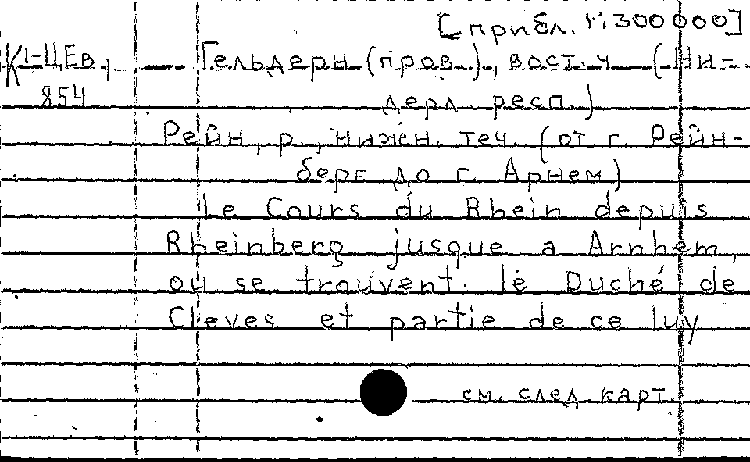 [прибл. 1:300 000]
К 1-ЦЕв. — Гельдерн (пров.), вост. ч. (Ни-
854 дерл. респ.)
Рейн, р., нижн. теч. (от г. Рейн-
берг до г. Арнем)
Le Cours du Rhein depuis
Rheinberg jusque a Arnhem,
ou se trouvent le Duché de
Cleves et partie de ce luy
см. след. карт.